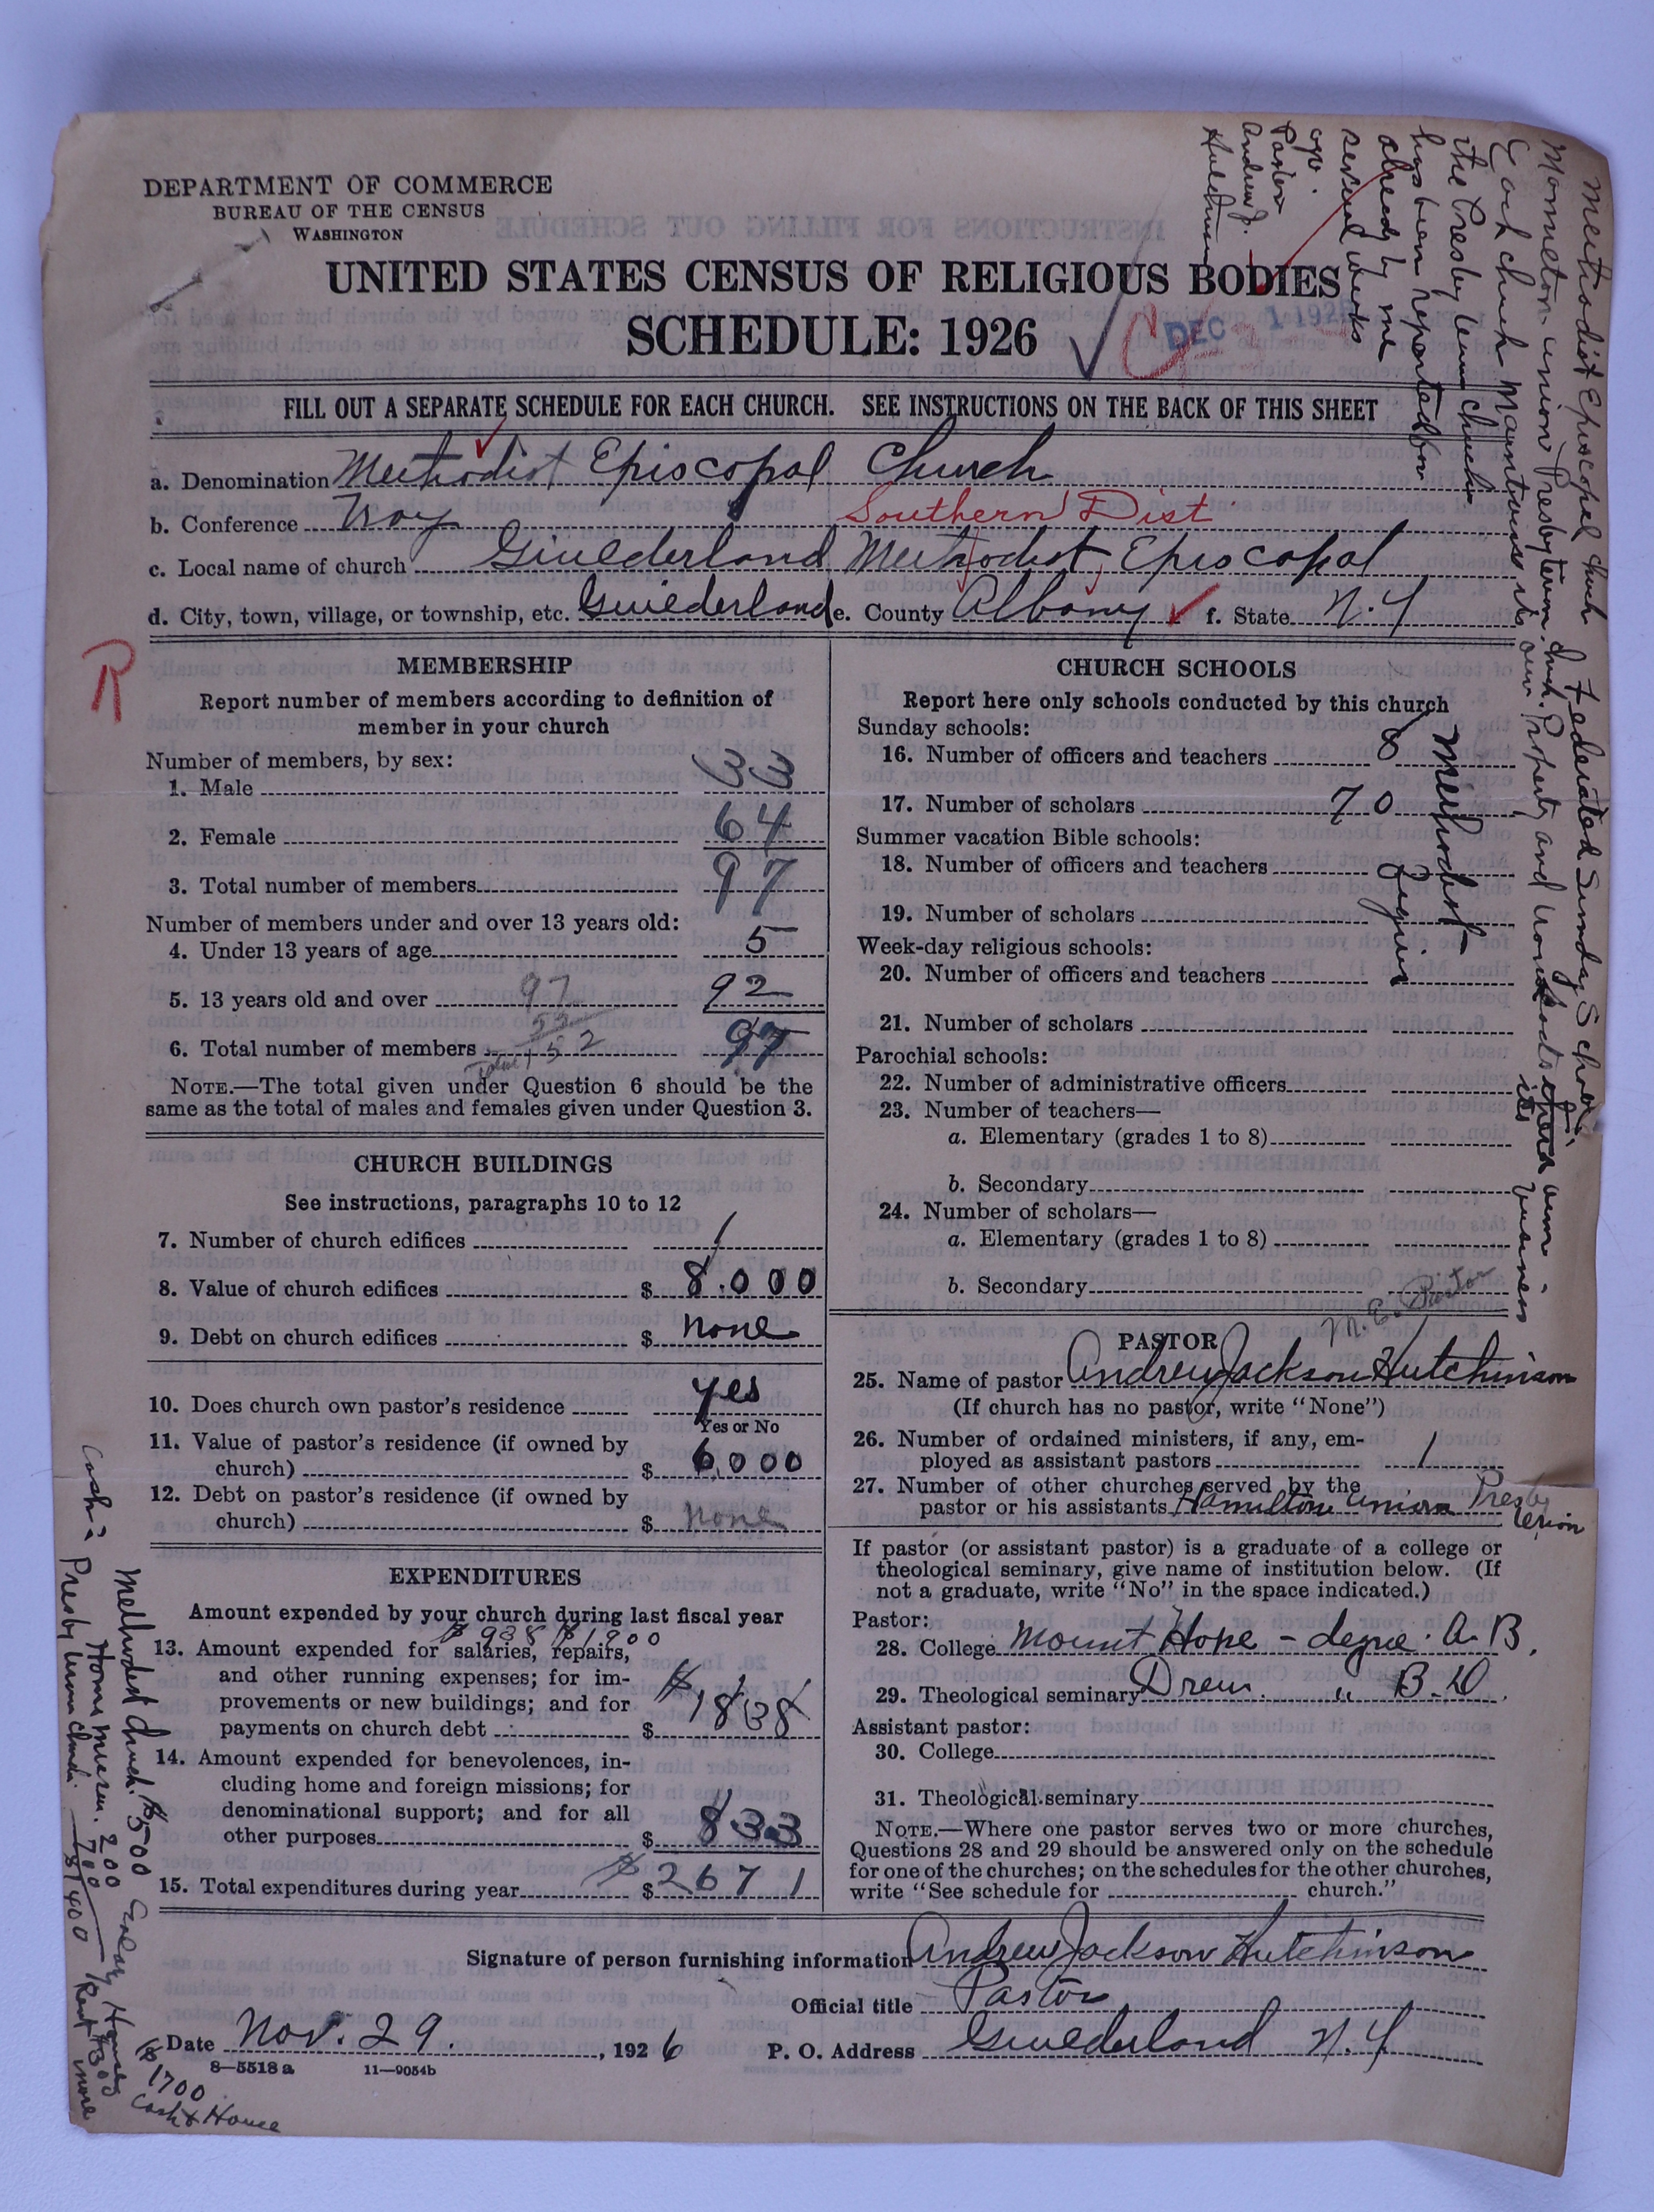 DEPARTMENT OF COMMERCE
BUREAU OF THE CENSUS
WASHINGTON
UNITED STATES CENSUS OF RELIGIOUS BODIES
SCHEDULE: 1926
DEC 1 1926
FILL OUT A SEPARATE SCHEDULE FOR EACH CHURCH. SEE INSTRUCTIONS ON THE BACK OF THIS SHEET
a. Denomination Methodist Episcopal Church
b. Conference Troy Southern Dist
c. Local name of church Guilderland Methodist Episcopal
d. City, town, village, or township, etc. Guilderland e. County Albany f. State N. Y
R
MEMBERSHIP
Report number of members according to definition of
member in your church
Number of members, by sex:
1. Male 33
2. Female 64
3. Total number of members 97
Number of members under and over 13 years old:
4. Under 13 years of age 5
5. 13 years old and over 92
6. Total number of members 97
NOTE.—The total given under Question 6 should be the
same as the total of males and females given under Question 3.
CHURCH BUILDINGS
See instructions, paragraphs 10 to 12
7. Number of church edifices 1
8. Value of church edifices $ 8.000
9. Debt on church edifices $ none
10. Does church own pastor's residence yes
Yes or No
11. Value of pastor's residence (if owned by
church) $ 6000
12. Debt on pastor's residence (if owned by
church) $ none
EXPENDITURES
Amount expended by your church during last fiscal year
13. Amount expended for salaries, repairs,
and other running expenses; for im-
provements or new buildings; and for
payments on church debt $ 1838
14. Amount expended for benevolences, in-
cluding home and foreign missions; for
denominational support; and for all
other purposes $ 833
15. Total expenditures during year $ 2671
CHURCH SCHOOLS
Report here only schools conducted by this church
Sunday schools:
16. Number of officers and teachers 8
17. Number of scholars 70
Summer vacation Bible schools:
18. Number of officers and teachers
19. Number of scholars
Week-day religious schools:
20. Number of officers and teachers
21. Number of scholars
Parochial schools:
22. Number of administrative officers
23. Number of teachers—
a. Elementary (grades 1 to 8)
b. Secondary
24. Number of scholars—
a. Elementary (grades 1 to 8)
b. Secondary
Methodist
M. E. Pastor
PASTOR
25. Name of pastor Andrew Jackson Hutchinson
(If church has no pastor, write "None")
26. Number of ordained ministers, if any, em-
ployed as assistant pastors 1
27. Number of other churches served by the
pastor or his assistants Hamilton Union Presbyterian
If pastor (or assistant pastor) is a graduate of a college or
theological seminary, give name of institution below. (If
not a graduate, write "No" in the space indicated.)
Pastor:
28. College Mount Hope - degree. A. B.
29. Theological seminary Drew. " B. D.
Assistant pastor:
30. College
31. Theological seminary
NOTE.—Where one pastor serves two or more churches,
Questions 28 and 29 should be answered only on the schedule
for one of the churches; on the schedules for the other churches,
write "See schedule for church."
Signature of person furnishing information Andrew Jackson Hutchinson
Official title Pastor
Date Nov. 29. , 1926 P. O. Address Guilderland N. Y
8—5518 a 11—9054b
Methodist Episcopal Church Federated Sunday School
Each church maintains its own property and
the Presbyterian church
has been reported
already by me
several weeks
ago.
Pastor
Andrew J.
Hutchinson
Cash:
Methodist Church. $500
Home mission. 200
Presbyterian Church. 700
$1400
$1700
Cash & House